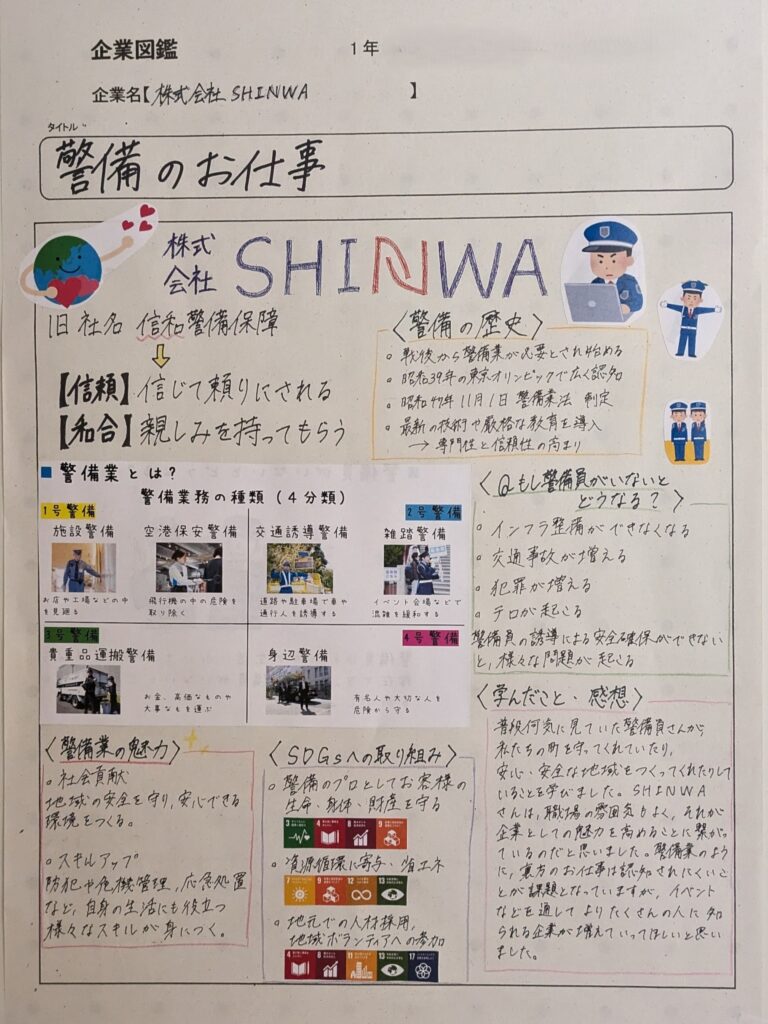 企業図鑑
1年
企業名【株式会社 SHINWA 】
タイトル
警備のお仕事
株式会社 SHINWA
旧社名 信和警備保障
【信頼】信じて頼りにされる
【和合】親しみを持ってもらう
〈警備の歴史〉
。戦後から警備業が必要とされ始める
。昭和39年の東京オリンピックで広く認知
。昭和47年11月1日 警備業法 制定
。最新の技術や厳格な教育を導入
→専門性と信頼性の高まり
■警備業とは?
警備業務の種類(4分類)
1号警備
施設警備
お店や工場などの中
を見廻る
空港保安警備
飛行機の中の危険を
取り除く
2号警備
交通誘導警備
道路や駐車場で車や
通行人を誘導する
雑踏警備
イベント会場などで
混雑を緩和する
3号警備
貴重品運搬警備
お金、高価なものや
大事なもを運ぶ
4号警備
身辺警備
有名人や大切な人を
危険から守る
〈Qもし警備員がいないと
どうなる?〉
。インフラ整備ができなくなる
。交通事故が増える
。犯罪が増える
。テロが起こる
警備員の誘導による安全確保ができない
と、様々な問題が起こる
〈警備業の魅力〉
。社会貢献
地域の安全を守り、安心できる
環境をつくる。
。スキルアップ
防犯や危機管理、応急処置
など、自身の生活にも役立つ
様々なスキルが身につく。
〈SDGsへの取り組み〉
。警備のプロとしてお客様の
生命・身体・財産を守る
3 4 8 9
。資源循環に寄与・省エネ
7 9 12 13
。地元での人材採用、
地域ボランティアへの参加
4 8 11 13 17
〈学んだこと・感想〉
普段何気に見ていた警備員さんが、
私たちの町を守ってくれていたり、
安心・安全な地域をつくってくれたりして
いることを学びました。SHINWA
さんは、職場の雰囲気もよく、それが
企業としての魅力を高めることに繋がっ
ているのだと思いました。警備業のよう
に、裏方のお仕事は認知されにくいこ
とが課題となっていますが、イベント
などを通してよりたくさんの人に知
られる企業が増えていってほしいと思い
ました。